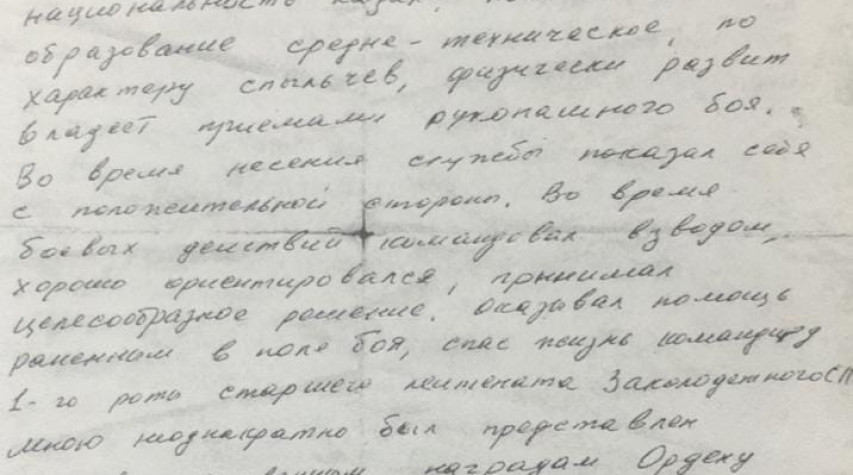 национальность казах.
образование средне-техническое, по
характеру спыльчев, физически развит
владеет приемами рукопашного боя.
Во время несения службы показал себя
с положительной стороны. Во время
боевых действий командовал взводом,
хорошо ориентировался, принимал
целесообразное решение. Оказывал помощь
раненным в поле боя, спас жизнь командиру
1-го роты старшего лейтената Заколодежного
Мною неоднакратно был представлен
наградам Ордену